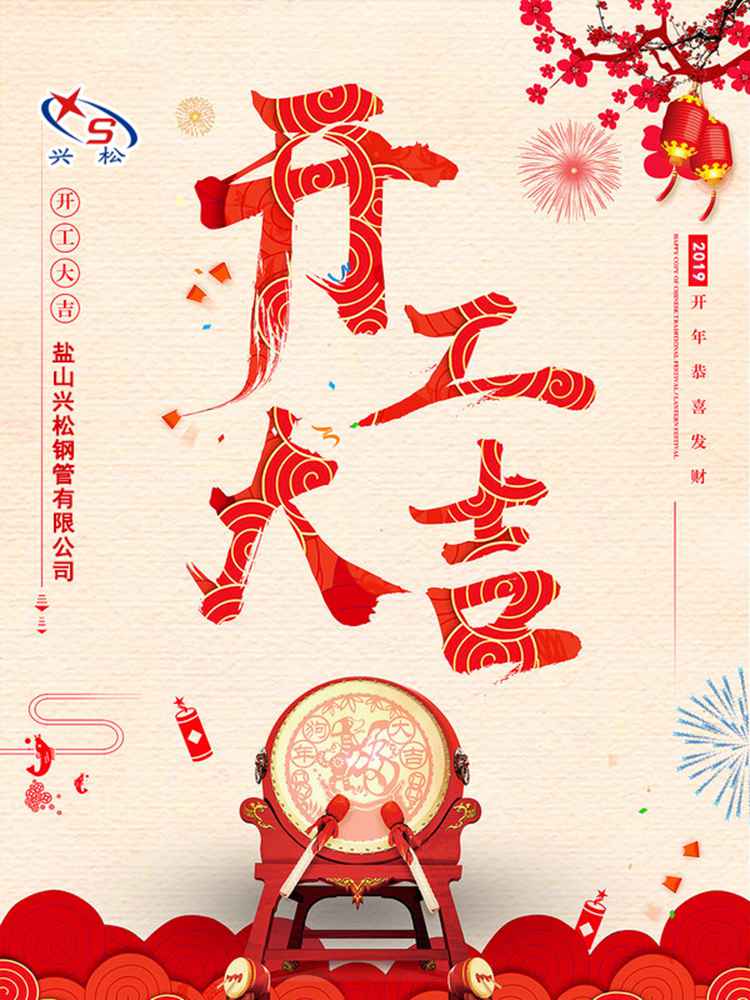 S
兴松
开工大吉
盐山兴松钢管有限公司
开工
大吉
2019
开年恭喜发财
HAPPY COPY OF CHINESE TRADITIONAL FESTIVAL/LANTERN FESTIVAL
狗年大吉